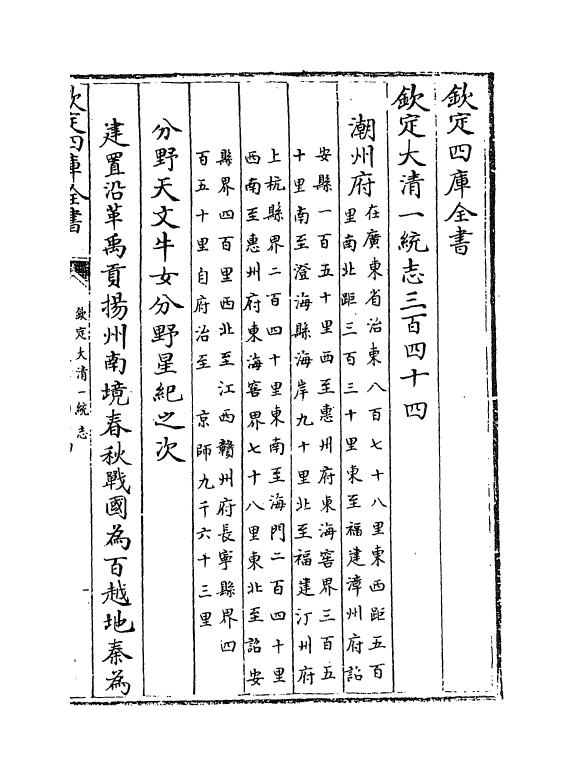 欽定四庫全書
欽定大清一統志三百四十四
潮州府在廣東省治東八百七十八里東西距五百
里南北距三百三十里東至福建漳州府詔
安縣一百五十里西至惠州府東海窖界三百五
十里南至澄海縣海岸九十里北至福建汀州府
上杭縣界二百四十里東南至海門二百四十里
西南至惠州府東海窖界七十八里東北至詔安
縣界四百里西北至江西贛州府長寧縣界四
百五十里自府治至 京師九千六十三里
分野天文牛女分野星紀之次
建置沿革禹貢揚州南境春秋戰國為百越地秦為
欽定四庫全書
欽定大清一統志